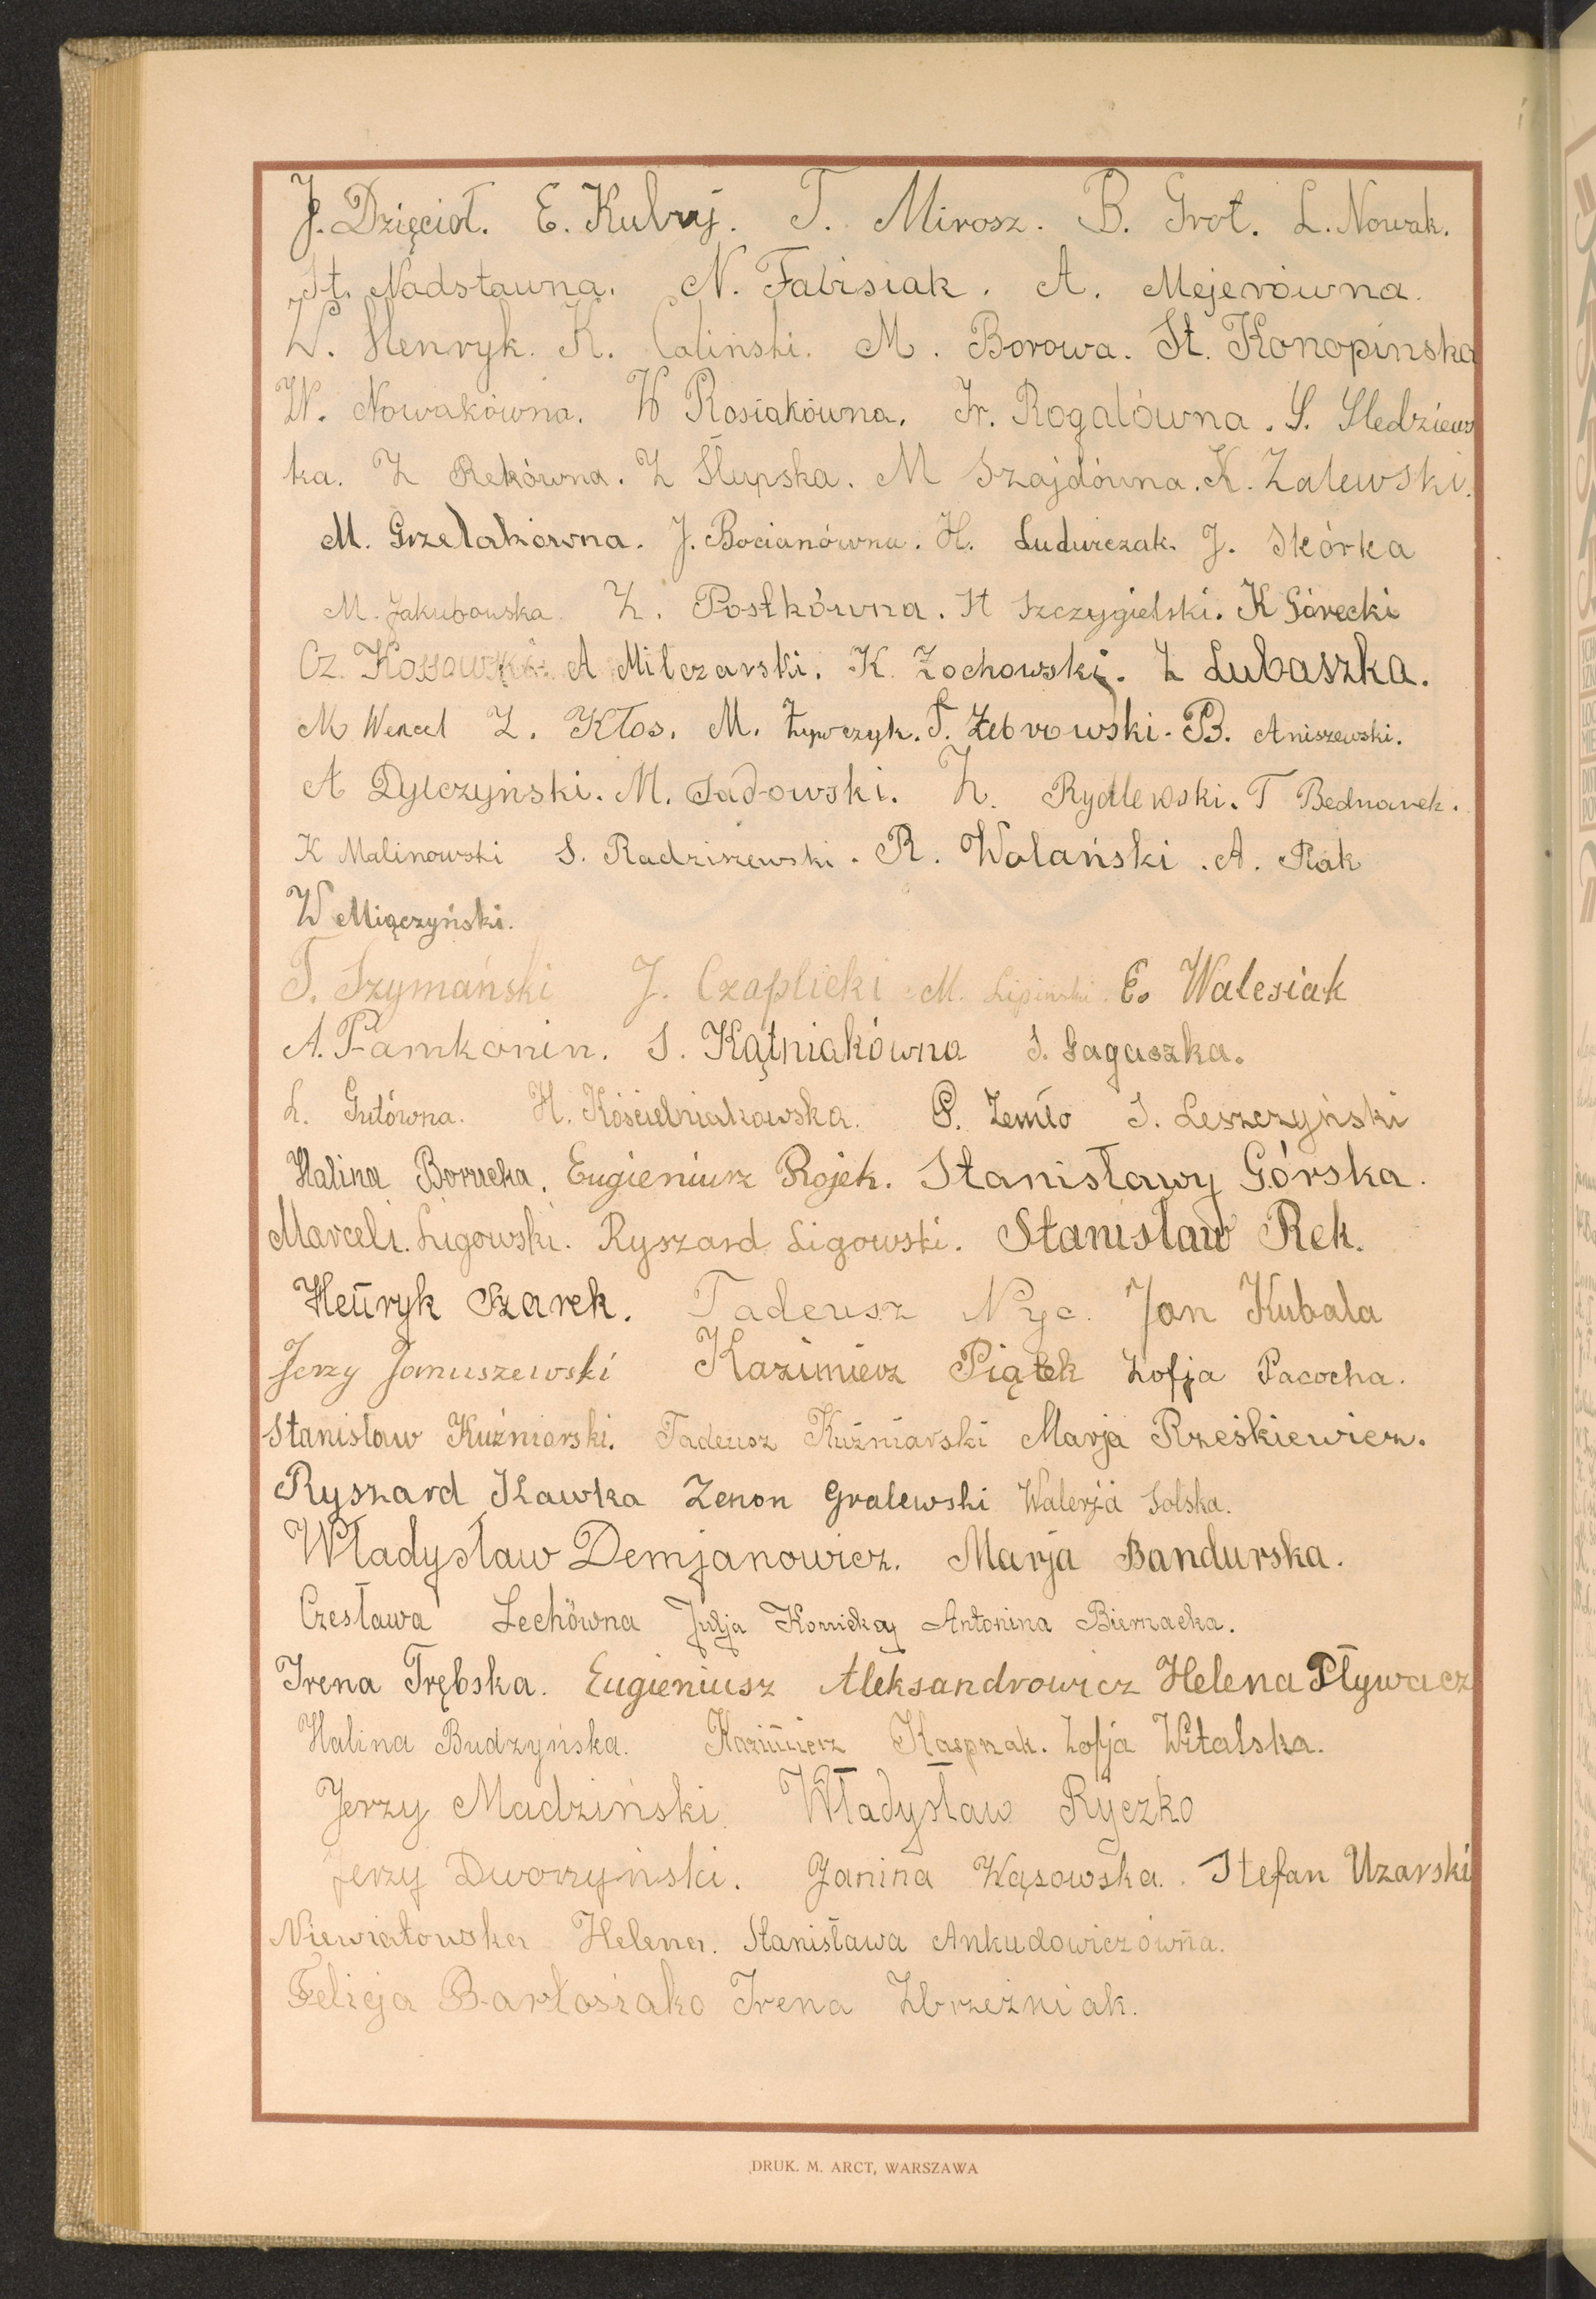 J. Dzięcioł. E. Kubryj. T. Mirosz. B. Grot. L. Nowak.
St. Nadstawna. N. Fabisiak. A. Mejerówna.
W. Henryk. K. Caliński. M. Borowa. St. Konopinska
W. Nowakówna. W Rosiakówna. Ir. Rogalówna. S. Sledziews
ka. Z Rekówna. Z Słupska. M Szajdówna. K. Zalewski.
M. Grzelakówna. J. Bocianówna. H. Ludwiczak. J. Skórka
M. Jakubowska. Z. Postkówna. St Szczygielski. K Górecki
Cz. Kossowski A Milczarski. K. Zochowski. Z Lubaszka.
M Wencel Z. Kłos. M. Żywczyk. T. Żebrowski. B. Aniszewski.
A Dylczyński. M. Sadowski. Z. Rydlewski. T Bednarek.
K Malinowski S. Radziszewski. R. Wolański. A. Rak
W Miączyński.
T. Szymański J. Czaplicki M. Lipiński E. Walesiak
A. Pamkonin. S. Kątniakówna S. Łagaszka.
L. Gutówna. H. Kościelniakowska. P. Zemło S. Leszczyński
Halina Borucka. Eugieniusz Rojek. Stanisławy Górska.
Marceli. Ligowski. Ryszard Ligowski. Stanisław Rek.
Henryk Szarek. Tadeusz Nyc. Jan Kubala
Jerzy Januszewski Kazimierz Piątek Zofja Pacocha.
Stanisław Kuźniarski. Tadeusz Kuźniarski Marja Rześkiewicz.
Ryszard Kawka Zenon Gralewski Walerja Solska.
Władysław Demjanowicz. Marja Bandurska.
Czesława Lechówna Julja Antonina Biernacka.
Irena Trębska. Eugieniusz Aleksandrowicz Helena Pływacz
Halina Budzyńska. Kazimierz Kasprzak. Zofja Witalska.
Jerzy Madziński. Władysław Ryczko
Jerzy Dworzyński. Janina Wąsowska. Stefan Uzarski
Niewiatowska Helena. Stanisława Ankudowiczówna.
Felicja Bartosiako Irena Zbrzeźniak.
DRUK. M. ARCT, WARSZAWA